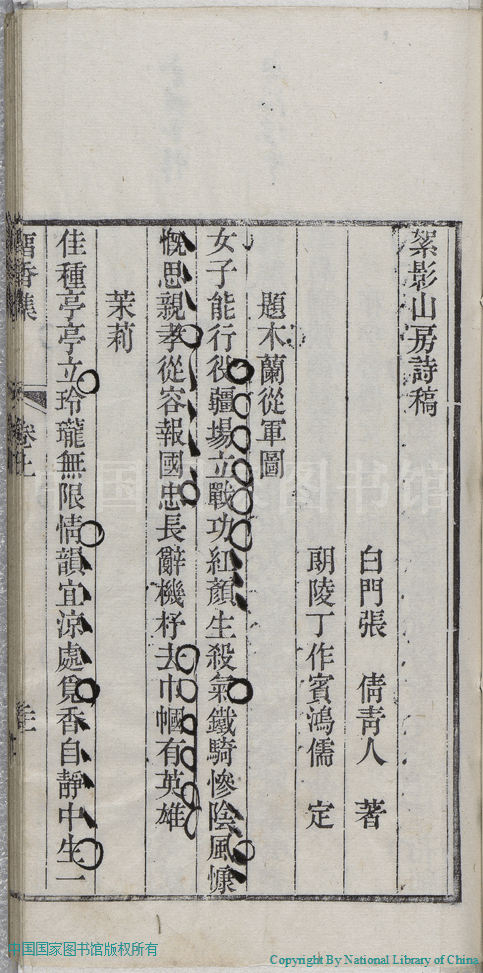 絮影山房詩稿
白門張 倩靑人 著
朙陵丁作賓鴻儒 定
題木蘭從軍圖
女子能行役疆場立戰功紅顏生殺氣鐵騎慘陰風慷
慨思親孝從容報國忠長辭機杼去巾幗有英雄
茉莉
佳種亭亭立玲瓏無限情韻宜涼處覓香自靜中生一
香集
中国国家图书馆
中国国家图书馆版权所有
Copyright By National Library of China